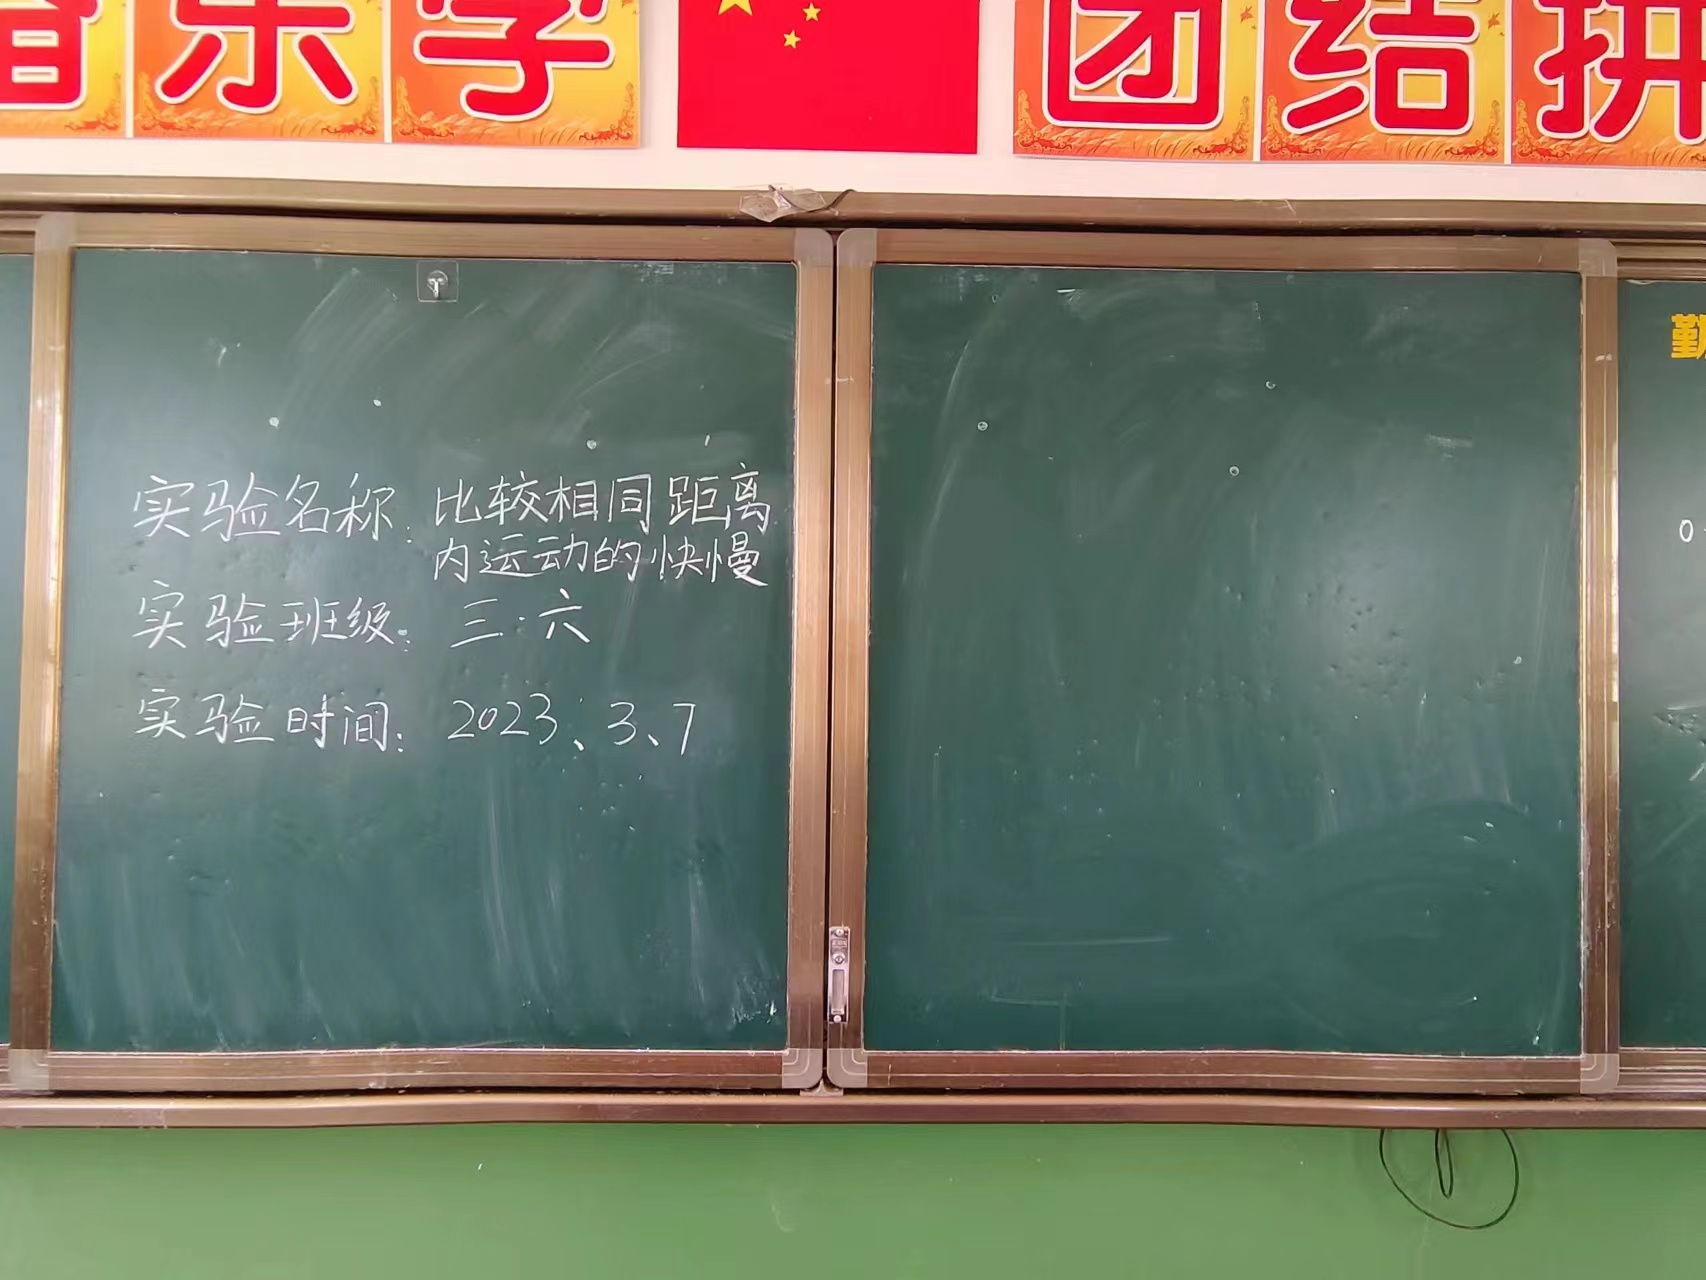 乐学
团结拼
实验名称：比较相同距离
内运动的快慢
实验班级：三.六
实验时间：2023、3、7
勤